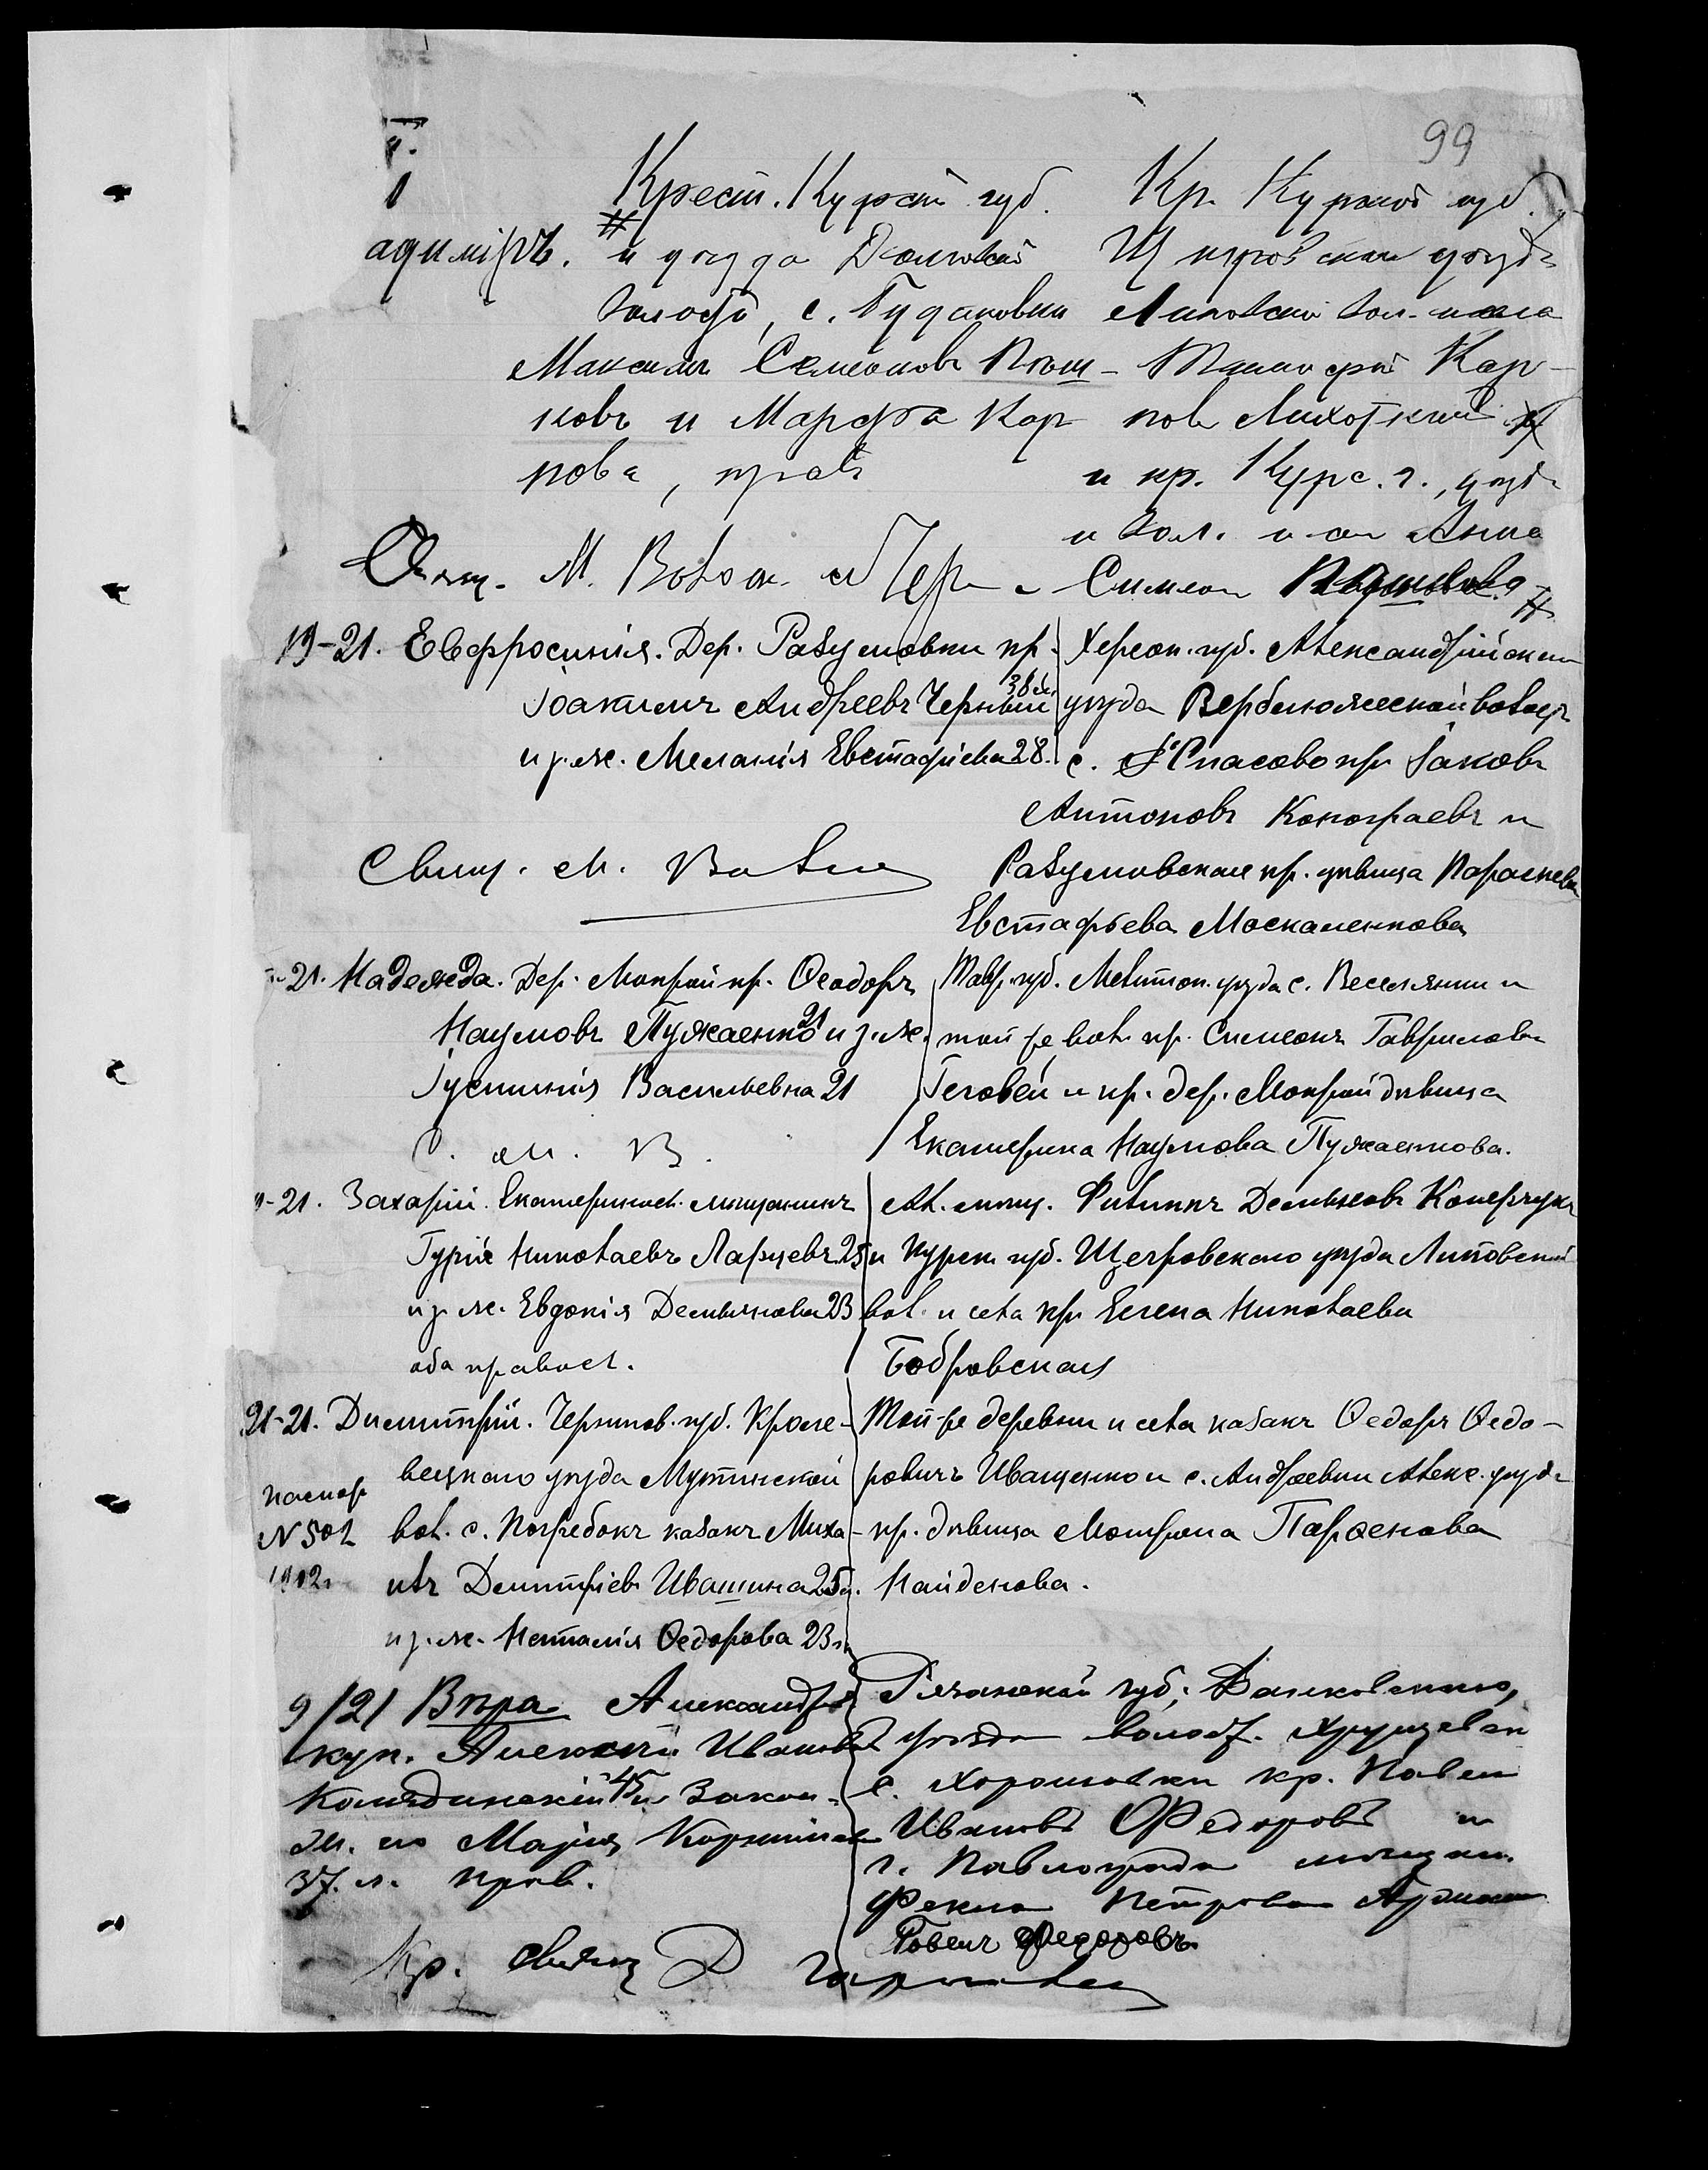 99
1
Крест. Курской губ.
адиміръ. и уѣзда
волости, с. Будановки
Максимъ Семеоновъ Пѣш-
ковъ и Марфа Кар
пова, прав.
Кр. Курской губ.
Щигровскаго уѣзда
Липовской вол. и села
Тимофей Кар-
повъ
и кр. Курс. г., уѣзда
и вол. и села Анна
Симеон
М.
19-21. Евфросинія. Дер. Разумовки кр.
Іоакимъ Андреевъ Черный 38 л.
и з. ж. Меланія Евстафіева 28.
Свящ. М.
Херсон. губ. Александрійскаго
уѣзда Верблюжеской волости
с. Спасово кр. Іаковъ
Антоновъ Конограевъ и
Разумовская кр. дѣвица Параскева
Евстафьева Москаленкова
21. Надежда. Дер. Мокрой кр. Ѳеодоръ
Наумовъ Пужаенко 21 и з. ж.
Іустинія Васильевна 21
С. М. В.
Тавр. губ. Мелитоп. уѣзда с. Веселянки и
той же вол. кр. Симеонъ Гавриловъ
и кр. дер. Мокрой дѣвица
Екатерина Наумова Пужаенкова.
-21. Захарій. Екатериносл. мѣщанинъ
Гурій Николаевъ Ларцевъ 25
и з. ж. Евдокія Демьянова 23
оба правосл.
Ал. мѣщ. Филиппъ Демьяновъ
и Курск. губ. Щегровскаго уѣзда Липовской
вол. и села кр. Елена Николаева
Бобровская
21-21. Димитрій. Чернигов. губ. Кроле-
вецкаго уѣзда Мутинской
вол. с. Погребокъ казакъ Миха-
илъ Димитріевъ Ивашина 25 л.
и з. ж. Наталія Ѳедорова 23 л.
паспор
N 502
1902 г.
Той-же деревни и села казакъ Ѳедоръ Ѳедо-
ровичъ Иващенко и с. Андреевки Алекс. уѣзда
кр. дѣвица Мотрона Парѳенова
Найденова.
9/21 Вѣра Александров
куп. Алексѣй Ивановъ
45 л. Закон.
ж. его Марія
37 л. прав.
Рязанской губ. Данковскаго,
уѣзда волост.
с. кр. Павел
Ивановъ Ѳедоровъ и
г. Павлограда мѣщан.
Фекла Петрова
Павелъ Федоровъ
Кр. свящ. Д